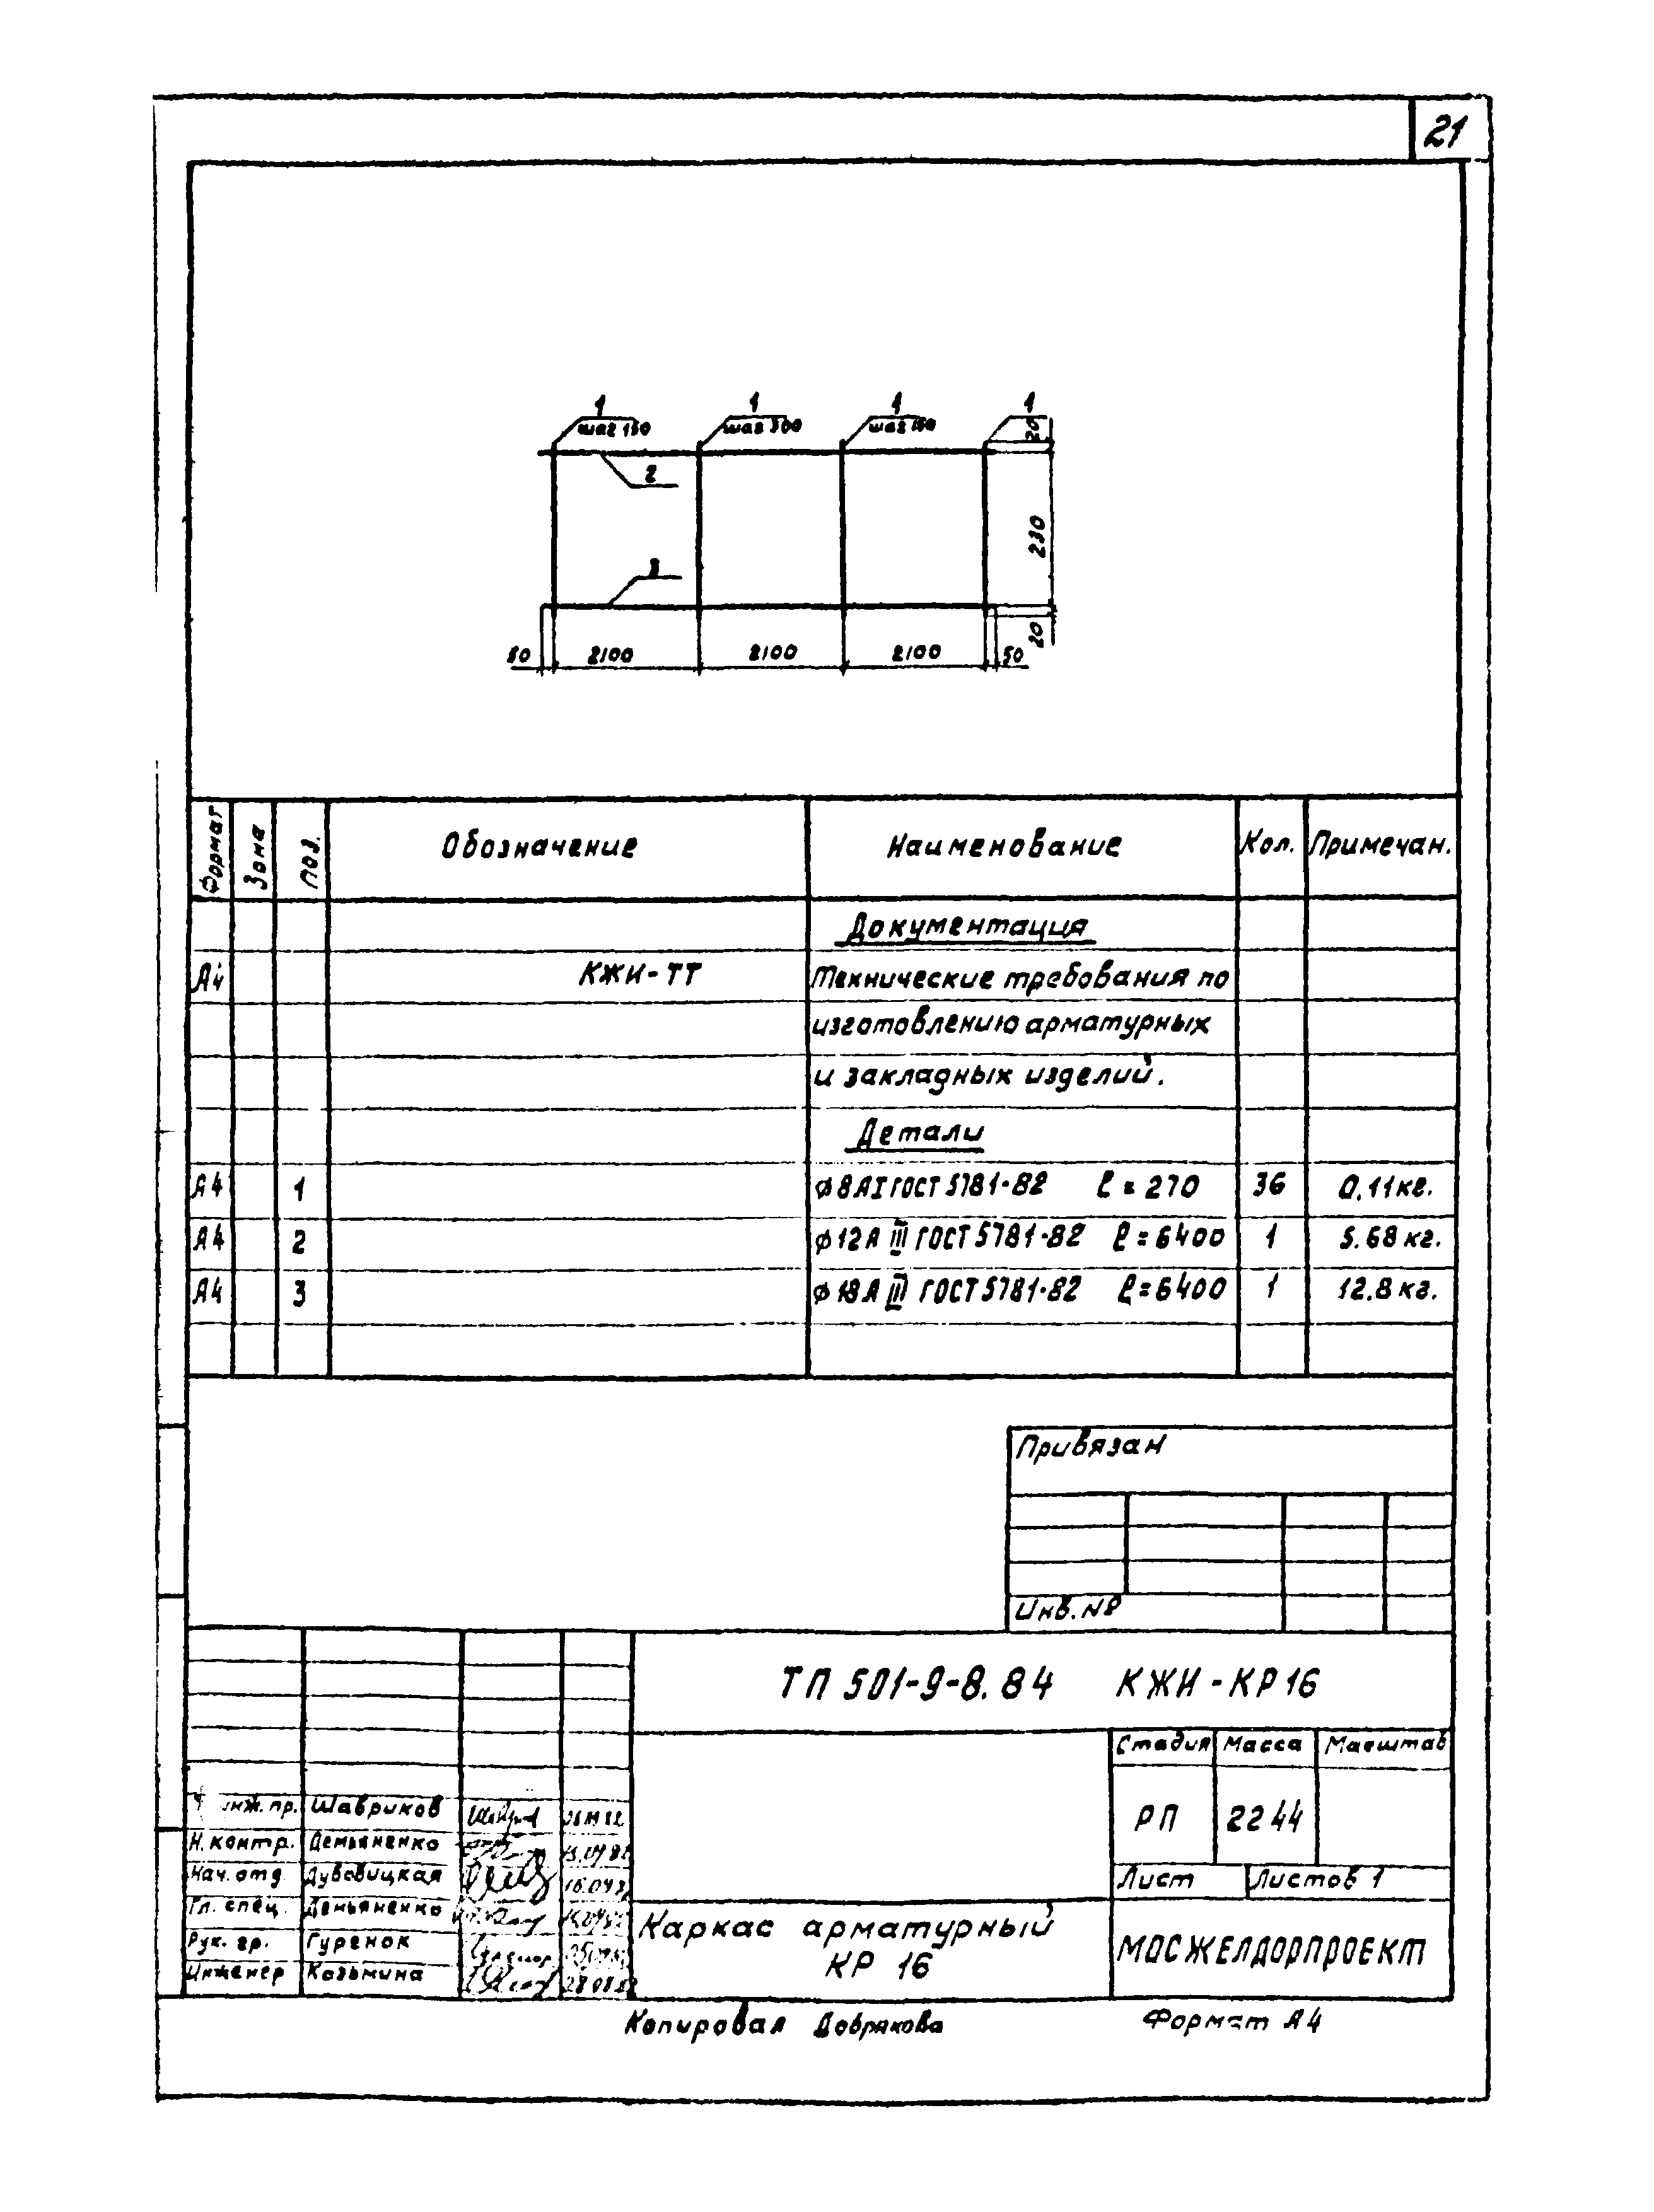 21
1 1 1 1
шаг 150 шаг 300 шаг 150
20
2
230
3
20
50 2100 2100 2100 50
Формат Зона Поз. Обозначение Наименование Кол. Примечан.
Документация
А4 КЖИ-ТТ Технические требования по
изготовлению арматурных
и закладных изделий.
Детали
А4 1 ⌀8АI ГОСТ 5781-82 ℓ=270 36 0.11кг.
А4 2 ⌀12А III ГОСТ 5781-82 ℓ=6400 1 5.68кг.
А4 3 ⌀18А III ГОСТ 5781-82 ℓ=6400 1 12.8кг.
Привязан
Инв.№
ТП 501-9-8.84 КЖИ-КР16
Стадия Масса Масштаб
РП 22 44
Лист Листов 1
инж.пр. Шавриков
Н.контр. Демьяненко
Нач.отд. Дубовицкая
Гл. спец. Демьяненко
Рук. гр. Гуренок
Инженер Козьмина
Каркас арматурный
КР 16
МОСЖЕЛДОРПРОЕКТ
Копировал Добрякова Формат А4